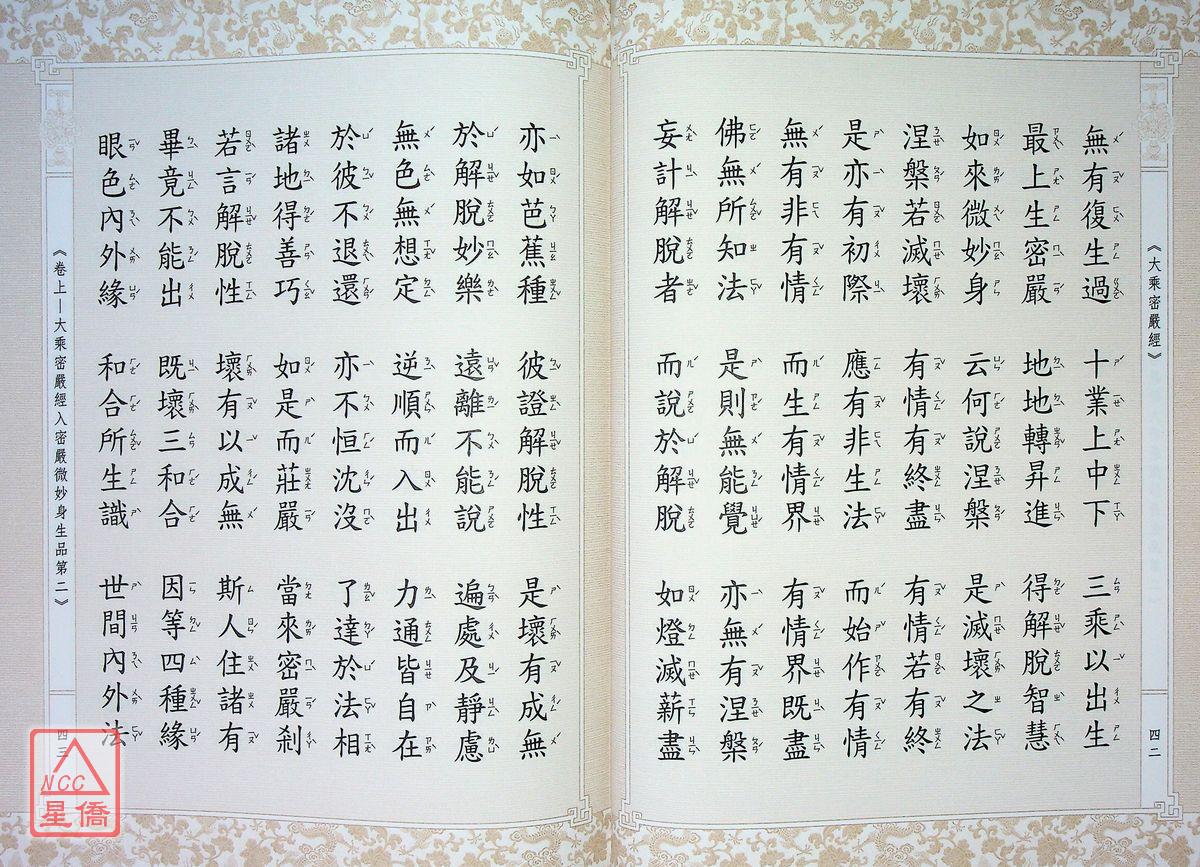 《大乘密嚴經》
無有復生過 十業上中下 三乘以出生
最上生密嚴 地地轉昇進 得解脫智慧
如來微妙身 云何說涅槃 是滅壞之法
涅槃若滅壞 有情有終盡 有情若有終
是亦有初際 應有非生法 而始作有情
無有非有情 而生有情界 有情界既盡
佛無所知法 是則無能覺 亦無有涅槃
妄計解脫者 而說於解脫 如燈滅薪盡
四二
亦如芭蕉種 彼證解脫性 是壞有成無
於解脫妙樂 遠離不能說 遍處及靜慮
無色無想定 逆順而入出 力通皆自在
於彼不退還 亦不恒沈沒 了達於法相
諸地得善巧 如是而莊嚴 當來密嚴剎
若言解脫性 壞有以成無 斯人住諸有
畢竟不能出 既壞三和合 因等四種緣
眼色內外緣 和合所生識 世間內外法
《卷上－大乘密嚴經入密嚴微妙身生品第二》
四三
NCC
星僑